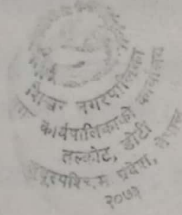 शिखर नगरपालिका
नगर कार्यपालिकाको कार्यालय
तल्कोट, डोटी
सुदूरपश्चिम प्रदेश, नेपाल
२०७३